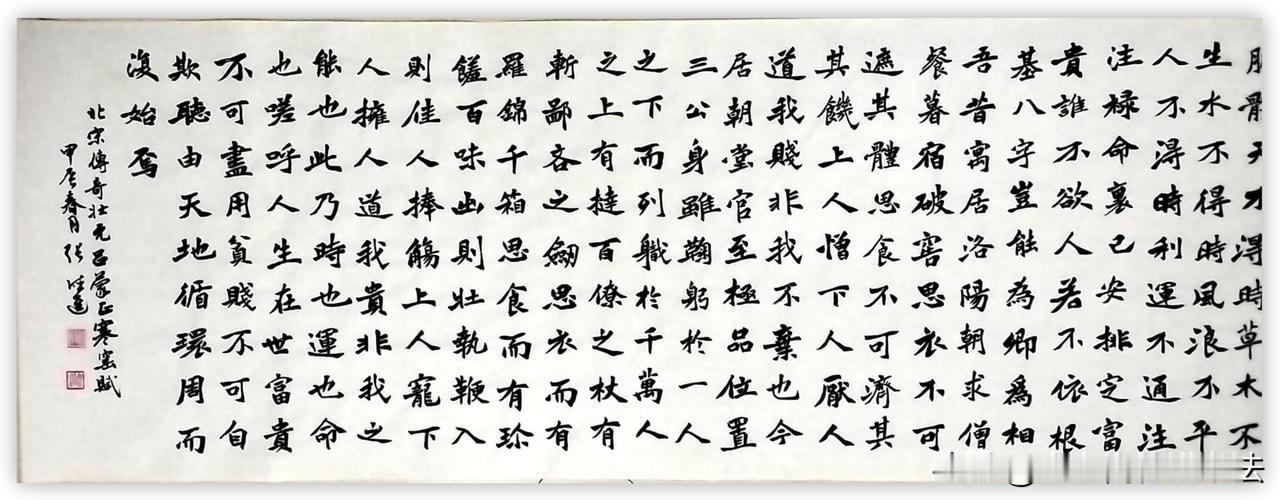 天不淂時草木不
生水不得時風浪不平
人不淂時利運不通注
注禄命裏已安排定富
貴誰不欲人若不依根
基八字豈能為卿為相
吾昔寓居洛陽朝求僧
餐暮宿破窖思衣不可
遮其體思食不可濟其
其饑上人憎下人厭人
道我賤非我不棄也今
居朝堂官至極品位置
三公身雖鞠躬於一人
之下而列職於千萬人
之上有撻百僚之杖有
斬鄙吝之劍思衣而有
羅錦千箱思食而有珍
饈百味出則壯執鞭入
則佳人捧觴上人寵下
人擁人道我貴非我之
能也此乃時也運也命
也嗟呼人生在世富貴
不可盡用貧賤不可自
欺聽由天地循環周而
復始焉
北宋傳奇壯元呂蒙正寒窑賦
甲辰春月張
去